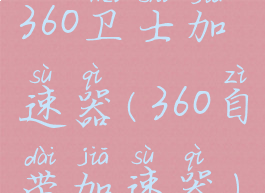 360卫士加
sù qì zì
速器(360自
dài jiā sù qì
带加速器)